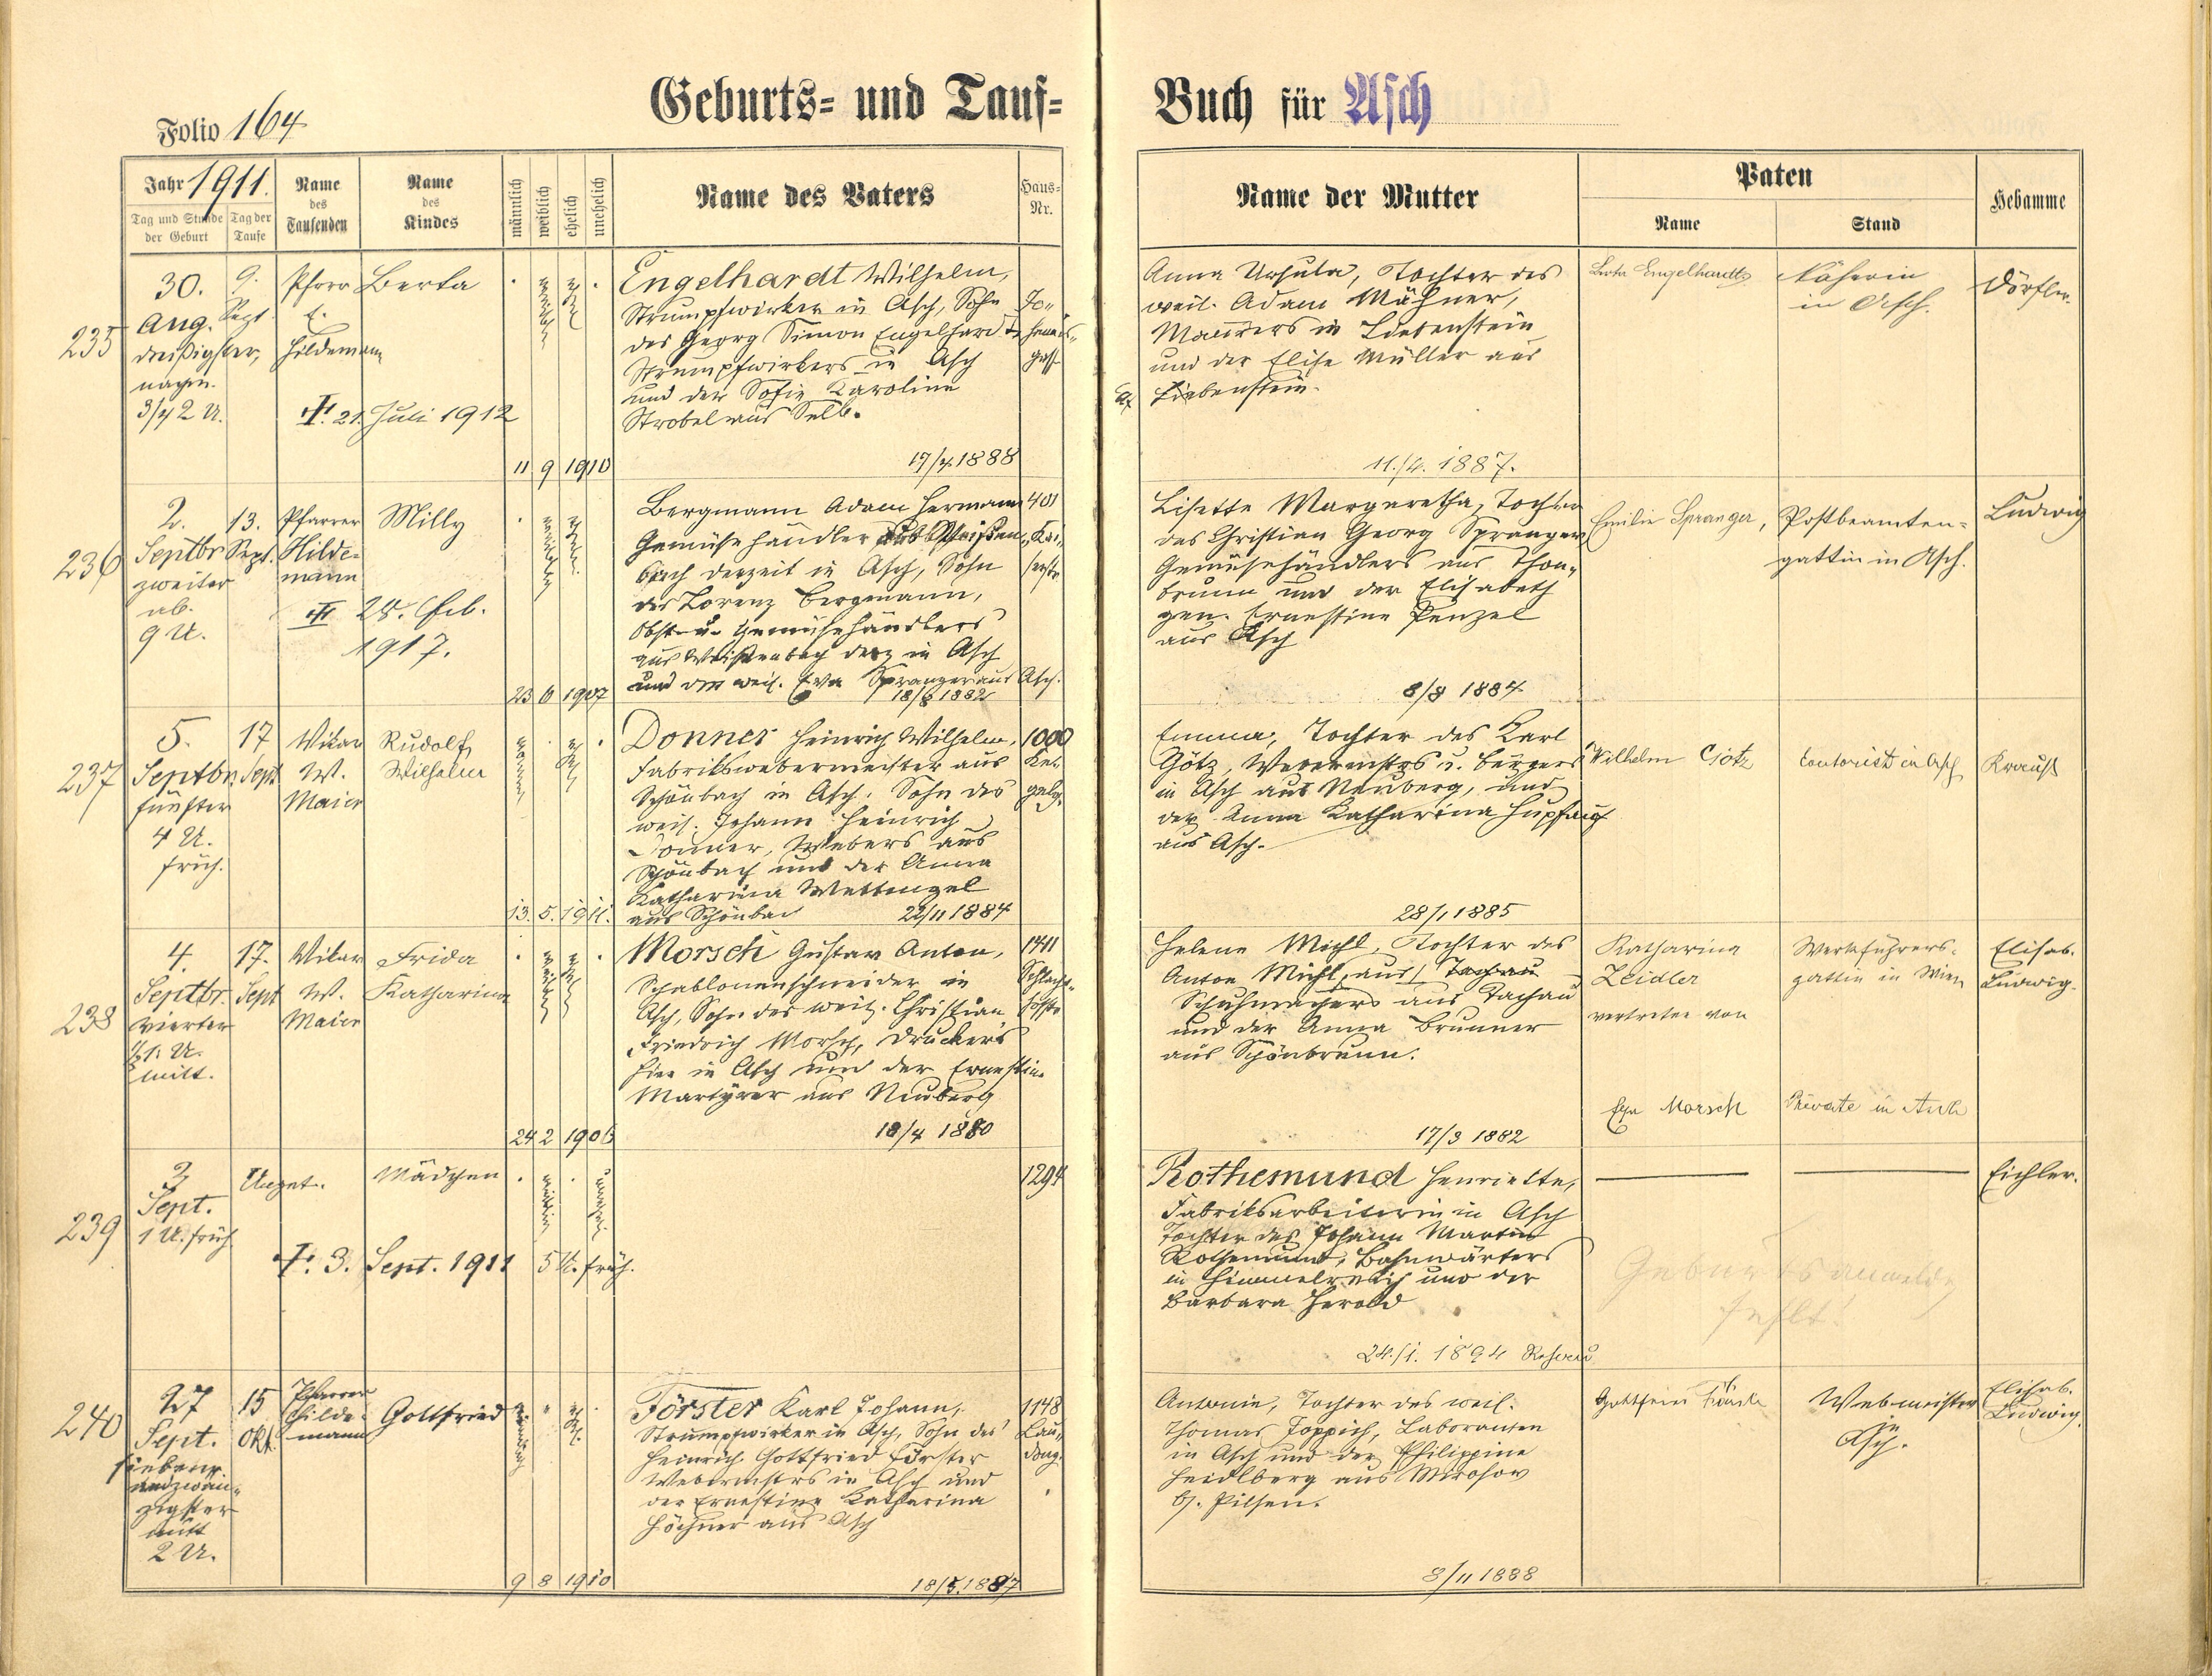 Folio 164
Geburts- und Tauf-
Buch für Asch
Jahr 1911.
Tag und Stunde der Geburt
Tag der Taufe
Name des Taufenden
Name des Kindes
männlich
weiblich
ehelich
unehelich
Name des Vaters
Haus-Nr.
Name der Mutter
Paten
Name
Stand
Hebamme
235
30.
Aug.
dreißigster,
nachm.
3/4 2 U.
9.
Sept.
Pfarr
Hildemann
Berta
21. Juli 1912
weiblich
ehelich
11 9 1910
Engelhardt Wilhelm,
Strumpfwirker in Asch, Sohn
des Georg Simon Engelhardt
Strumpfwirkers in Asch
und der Sofie Karoline
Strobel aus Selb.
17/4 1888
Anna Ursula, Tochter des
weil. Adam Mähner,
Maurers in Liebenstein
und der Elise Müller aus
Liebenstein.
11./4. 1887.
Berta Engelhardt
Näherin
in Asch.
Dörfler
236
2.
Septbr
zweiter
ab.
9 U.
13.
Sept.
Pfarrer
Hilde-
mann
Milly
28. Feb.
1917.
weiblich
ehelich
23 6 1907
Bergmann Adam Hermann
Gemüsehändler aus Weißen-
bach derzeit in Asch, Sohn
des Lorenz Bergmann,
Obst- u. Gemüsehändlers
aus Weißenbach derz in Asch
und der weil. Eva Spranger aus Asch.
18/8 1882
401
Lisette Margaretha, Tochter
des Christian Georg Spranger
Gemüsehändlers aus Thon-
brunn und der Elisabeth
gen. Ernestine Penzel
aus Asch
8/8 1884
Emilie Spranger,
Postbeamten-
gattin in Asch.
Ludwig
237
5.
Septbr.
fünfter
4 U.
früh.
17
Sept
Vikar
W.
Maier
Rudolf
Wilhelm
männlich
ehelich
13. 5. 1911.
Donner Heinrich Wilhelm,
Fabrikswebermeister aus
Schönbach in Asch, Sohn des
weil. Johann Heinrich
Donner, Webers aus
Schönbach und der Anna
Katharina Wettengel
aus Schönbach
22/11 1884
1000
Emma, Tochter des Karl
Götz, Webermstrs u. Bürgers
in Asch aus Neuberg, und
der Anna Katharina Hupfauf
aus Asch.
28/1 1885
Wilhelm Götz
Contorist in Asch
Krauß
238
4.
Septbr.
vierter
1/2 1. U.
mitt.
17.
Sept
Vikar
W.
Maier
Frida
Katharina
weiblich
ehelich
24 2 1906
Morsch Gustav Anton,
Schablonenschneider in
Asch, Sohn des weil. Christian
Friedrich Morsch, Druckers
hier in Asch und der Ernestine
Martyrer aus Neuberg
18/4 1880
1411
Helene Michl, Tochter des
Anton Michl, aus Tachau
Schuhmachers aus Tachau
und der Anna Brunner
aus Schönbrunn.
17/3 1882
Katharina
Zeidler
vertreten von
Eva Morsch
Werkführers-
gattin in Wien
Private in Asch
Elisab.
Ludwig.
239
3
Sept.
1 U. früh
Unget.
Mädchen
weiblich
3. Sept. 1911 5 U. früh.
1294
Rothemund Henriette,
Fabriksarbeiterin in Asch
Tochter des Johann Martin
Rothemund, Bahnwärters
in Himmelreich und der
Barbara Herold
24./1. 1894
Geburtsanmelde
fehlt!
Eichler.
240
27
Sept.
siebenu
undzwan-
zigster
mitt
2 U.
15
Okt.
Pfarrer
Hilde-
mann
Gottfried
männlich
ehelich
9 8 1910
Förster Karl Johann,
Strumpfwirker in Asch, Sohn des
Heinrich Gottfried Förster
Webermstrs in Asch und
der Ernestine Katharina
Höchner aus Asch
18/5. 1887
1148
Antonie, Tochter des weil.
Thomas Toppich, Laboranten
in Asch und der Philippine
Heidlberg aus Mirosov
b/. Pilsen.
8/11 1888
Webmeister
in
Asch.
Elisab.
Ludwig.